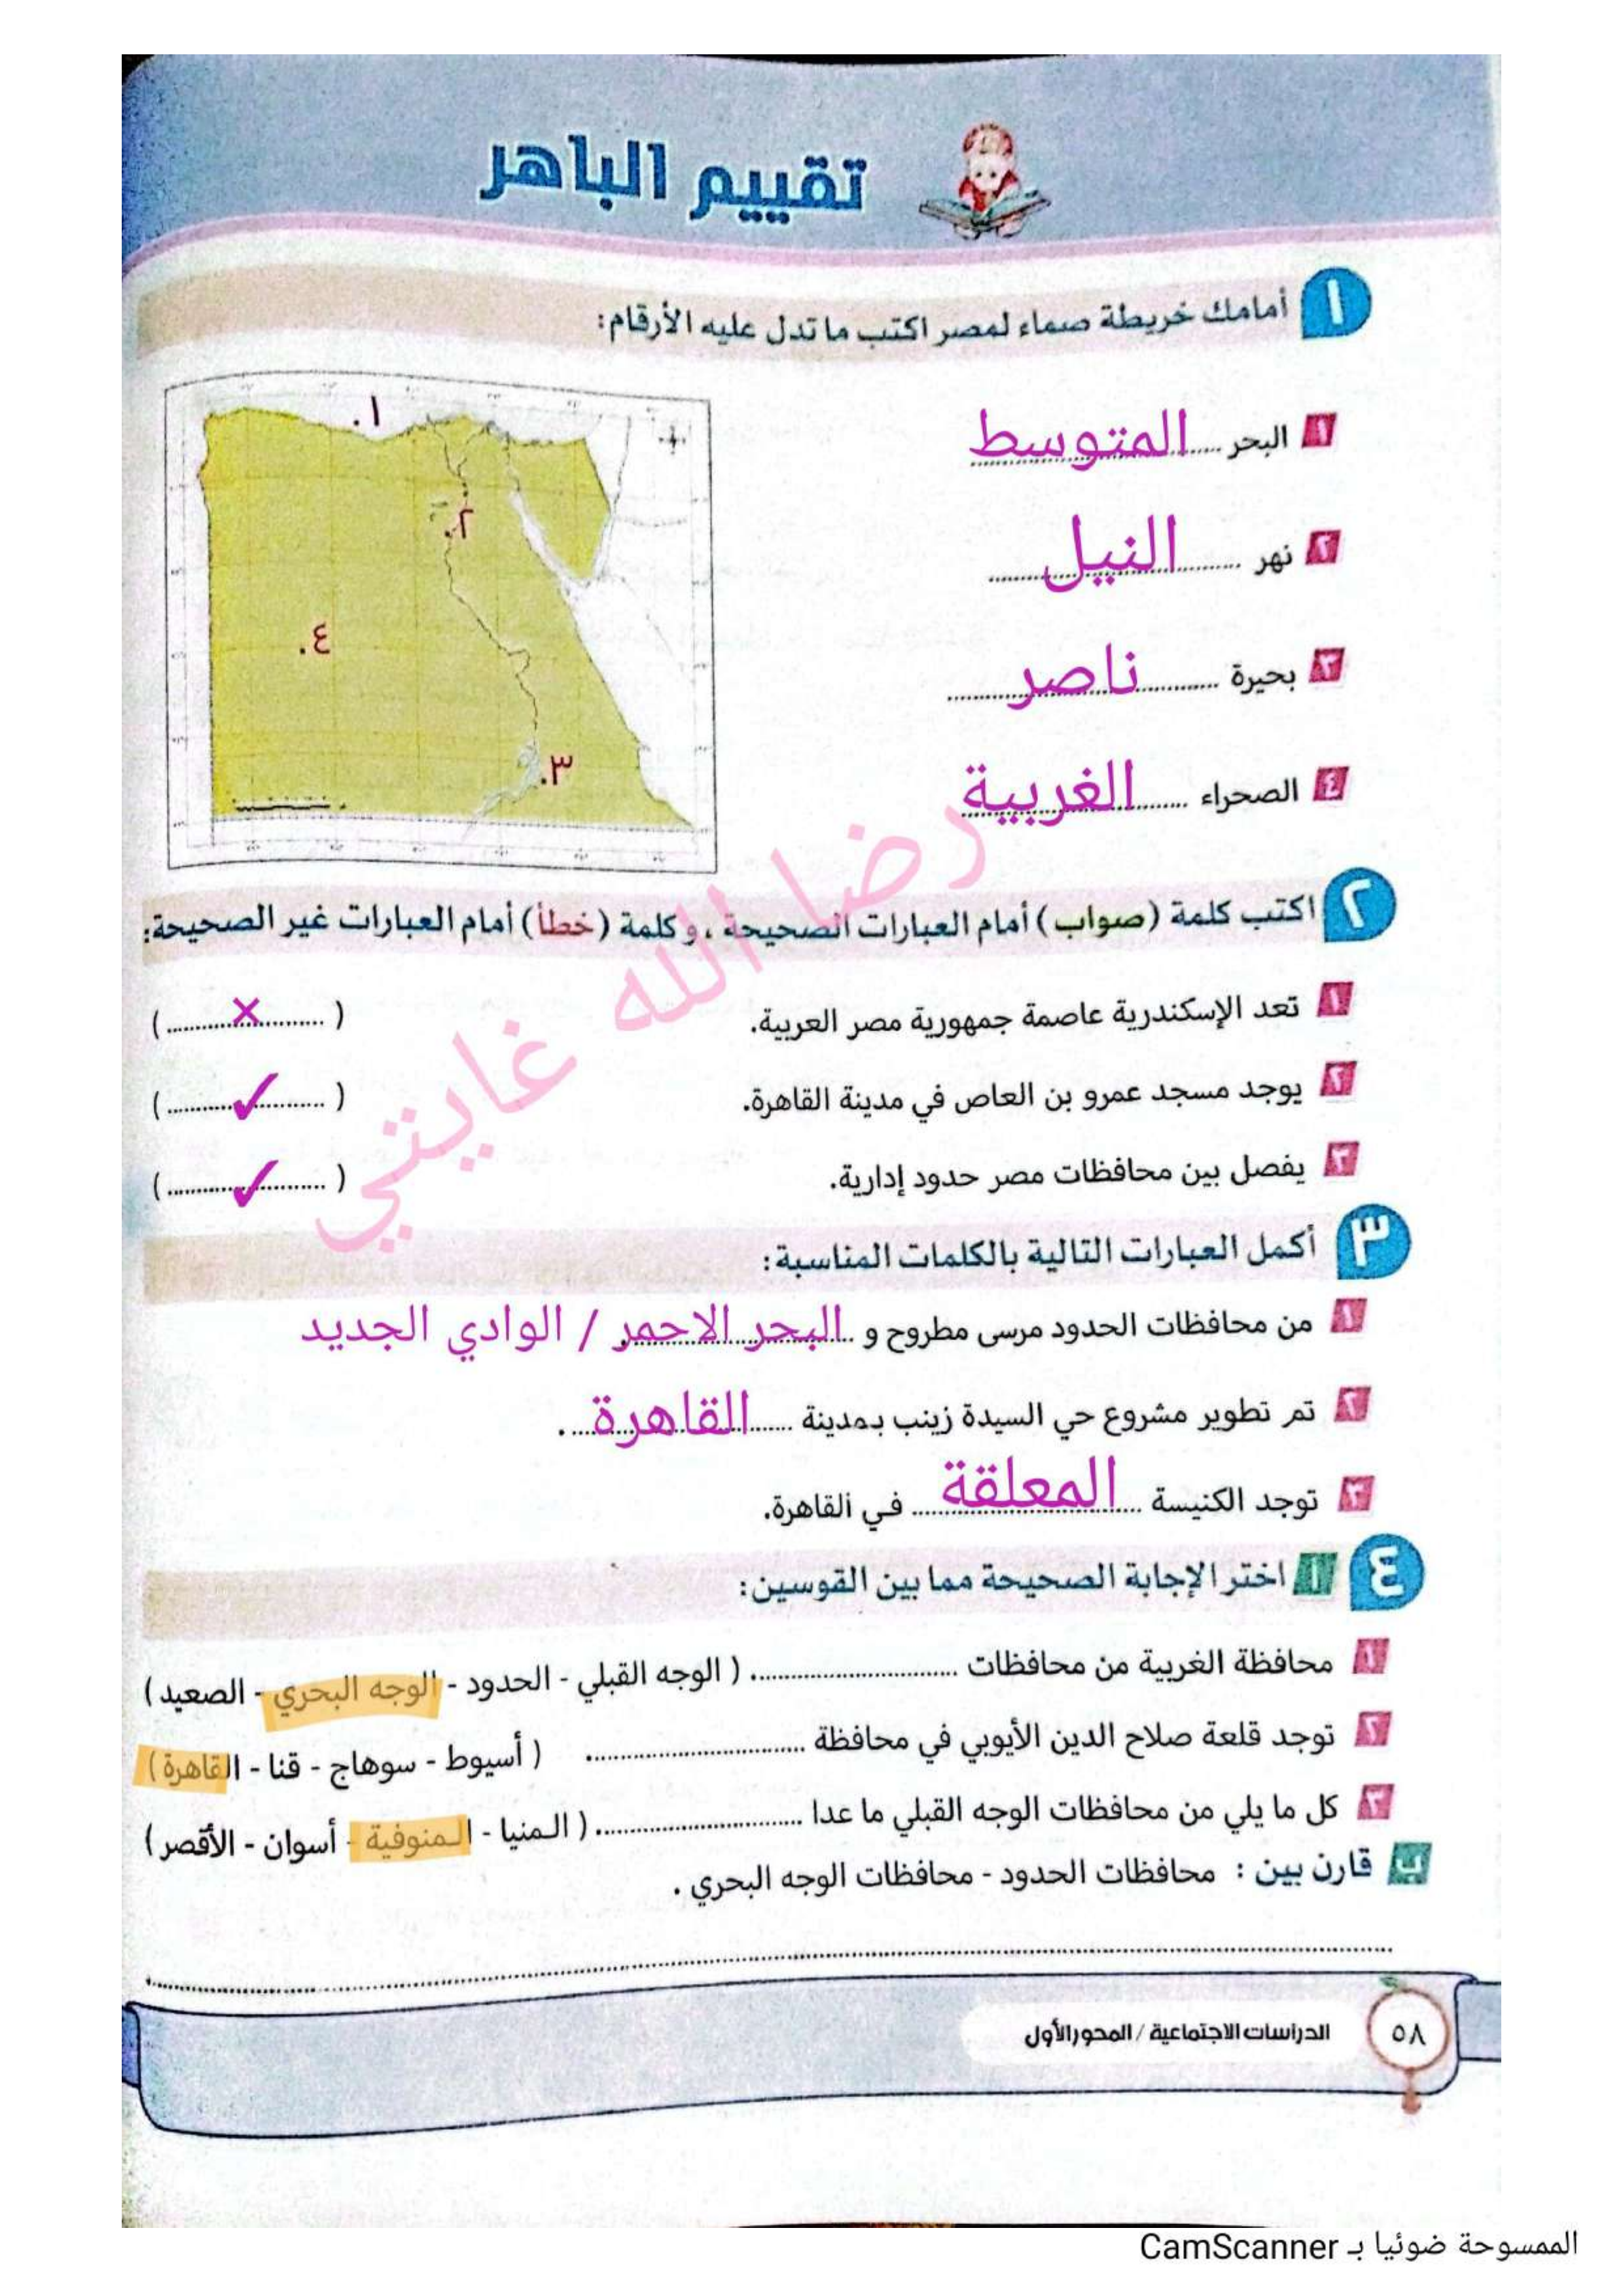 تقييم الباهر
١ أمامك خريطة صماء لمصر اكتب ما تدل عليه الأرقام:
١ البحر المتوسط
٢ نهر النيل
٣ بحيرة ناصر
٤ الصحراء الغربية
١.
٢.
٤.
٣.
رضا الله غايتي
٢ اكتب كلمة (صواب) أمام العبارات الصحيحة، وكلمة (خطأ) أمام العبارات غير الصحيحة:
١ تعد الإسكندرية عاصمة جمهورية مصر العربية. (......×......)
٢ يوجد مسجد عمرو بن العاص في مدينة القاهرة. (......✓......)
٣ يفصل بين محافظات مصر حدود إدارية. (......✓......)
٣ أكمل العبارات التالية بالكلمات المناسبة:
١ من محافظات الحدود مرسى مطروح و البحر الاحمر / الوادي الجديد
٢ تم تطوير مشروع حي السيدة زينب بمدينة القاهرة.
٣ توجد الكنيسة المعلقة في القاهرة.
٤ أ اختر الإجابة الصحيحة مما بين القوسين:
١ محافظة الغربية من محافظات ............ (الوجه القبلي - الحدود - الوجه البحري - الصعيد)
٢ توجد قلعة صلاح الدين الأيوبي في محافظة ............ (أسيوط - سوهاج - قنا - القاهرة)
٣ كل ما يلي من محافظات الوجه القبلي ما عدا ............ (المنيا - المنوفية - أسوان - الأقصر)
ب قارن بين : محافظات الحدود - محافظات الوجه البحري .
٥٨ الدراسات الاجتماعية / المحور الأول
الممسوحة ضوئيا بـ CamScanner